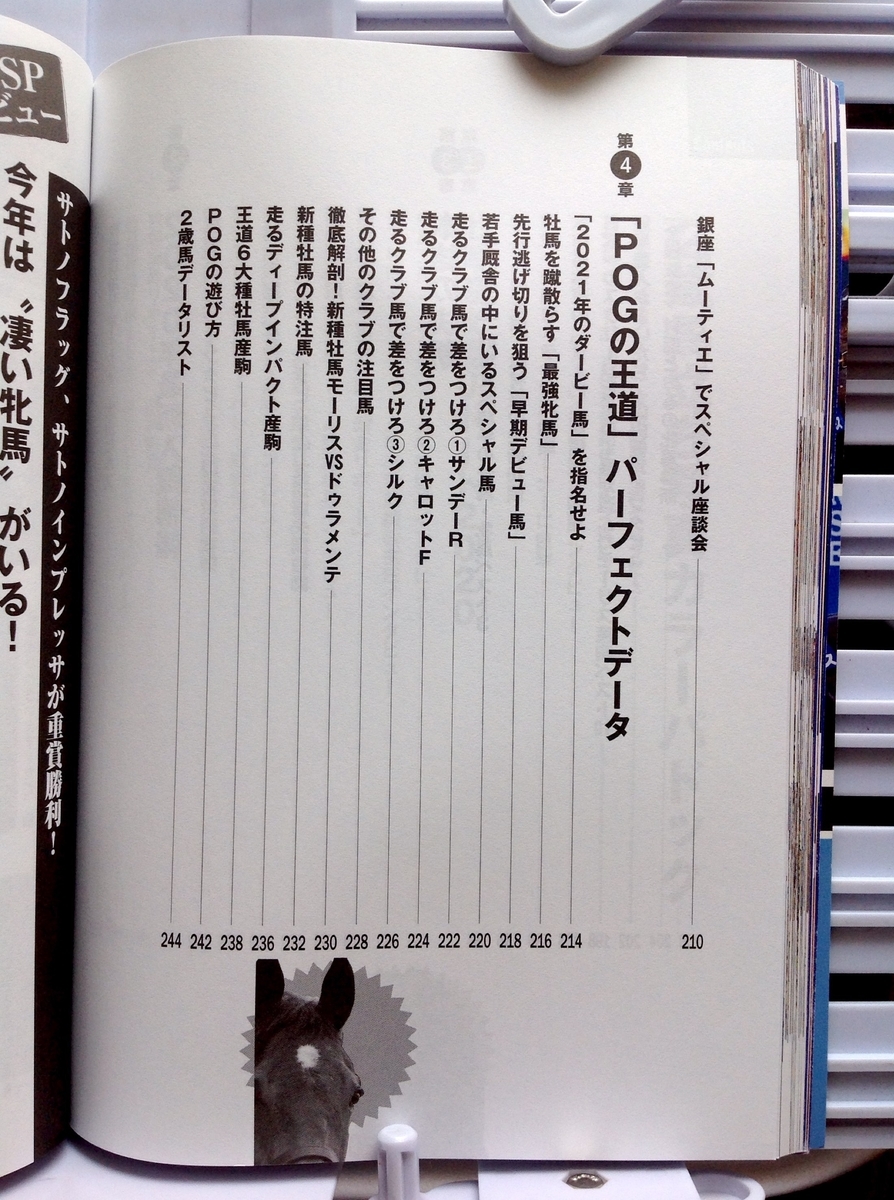 銀座「ムーティエ」でスペシャル座談会 210
第4章
「POGの王道」パーフェクトデータ
「2021年のダービー馬」を指名せよ 214
牡馬を蹴散らす「最強牝馬」 216
先行逃げ切りを狙う「早期デビュー馬」 218
若手厩舎の中にいるスペシャル馬 220
走るクラブ馬で差をつけろ①サンデーR 222
走るクラブ馬で差をつけろ②キャロットF 224
走るクラブ馬で差をつけろ③シルク 226
その他のクラブの注目馬 228
徹底解剖！新種牡馬モーリスVSドゥラメンテ 230
新種牡馬の特注馬 232
走るディープインパクト産駒 236
王道6大種牡馬産駒 238
POGの遊び方 242
2歳馬データリスト 244
SP
ビュー
サトノフラッグ、サトノインプレッサが重賞勝利！
今年は〝凄い牝馬〟がいる！